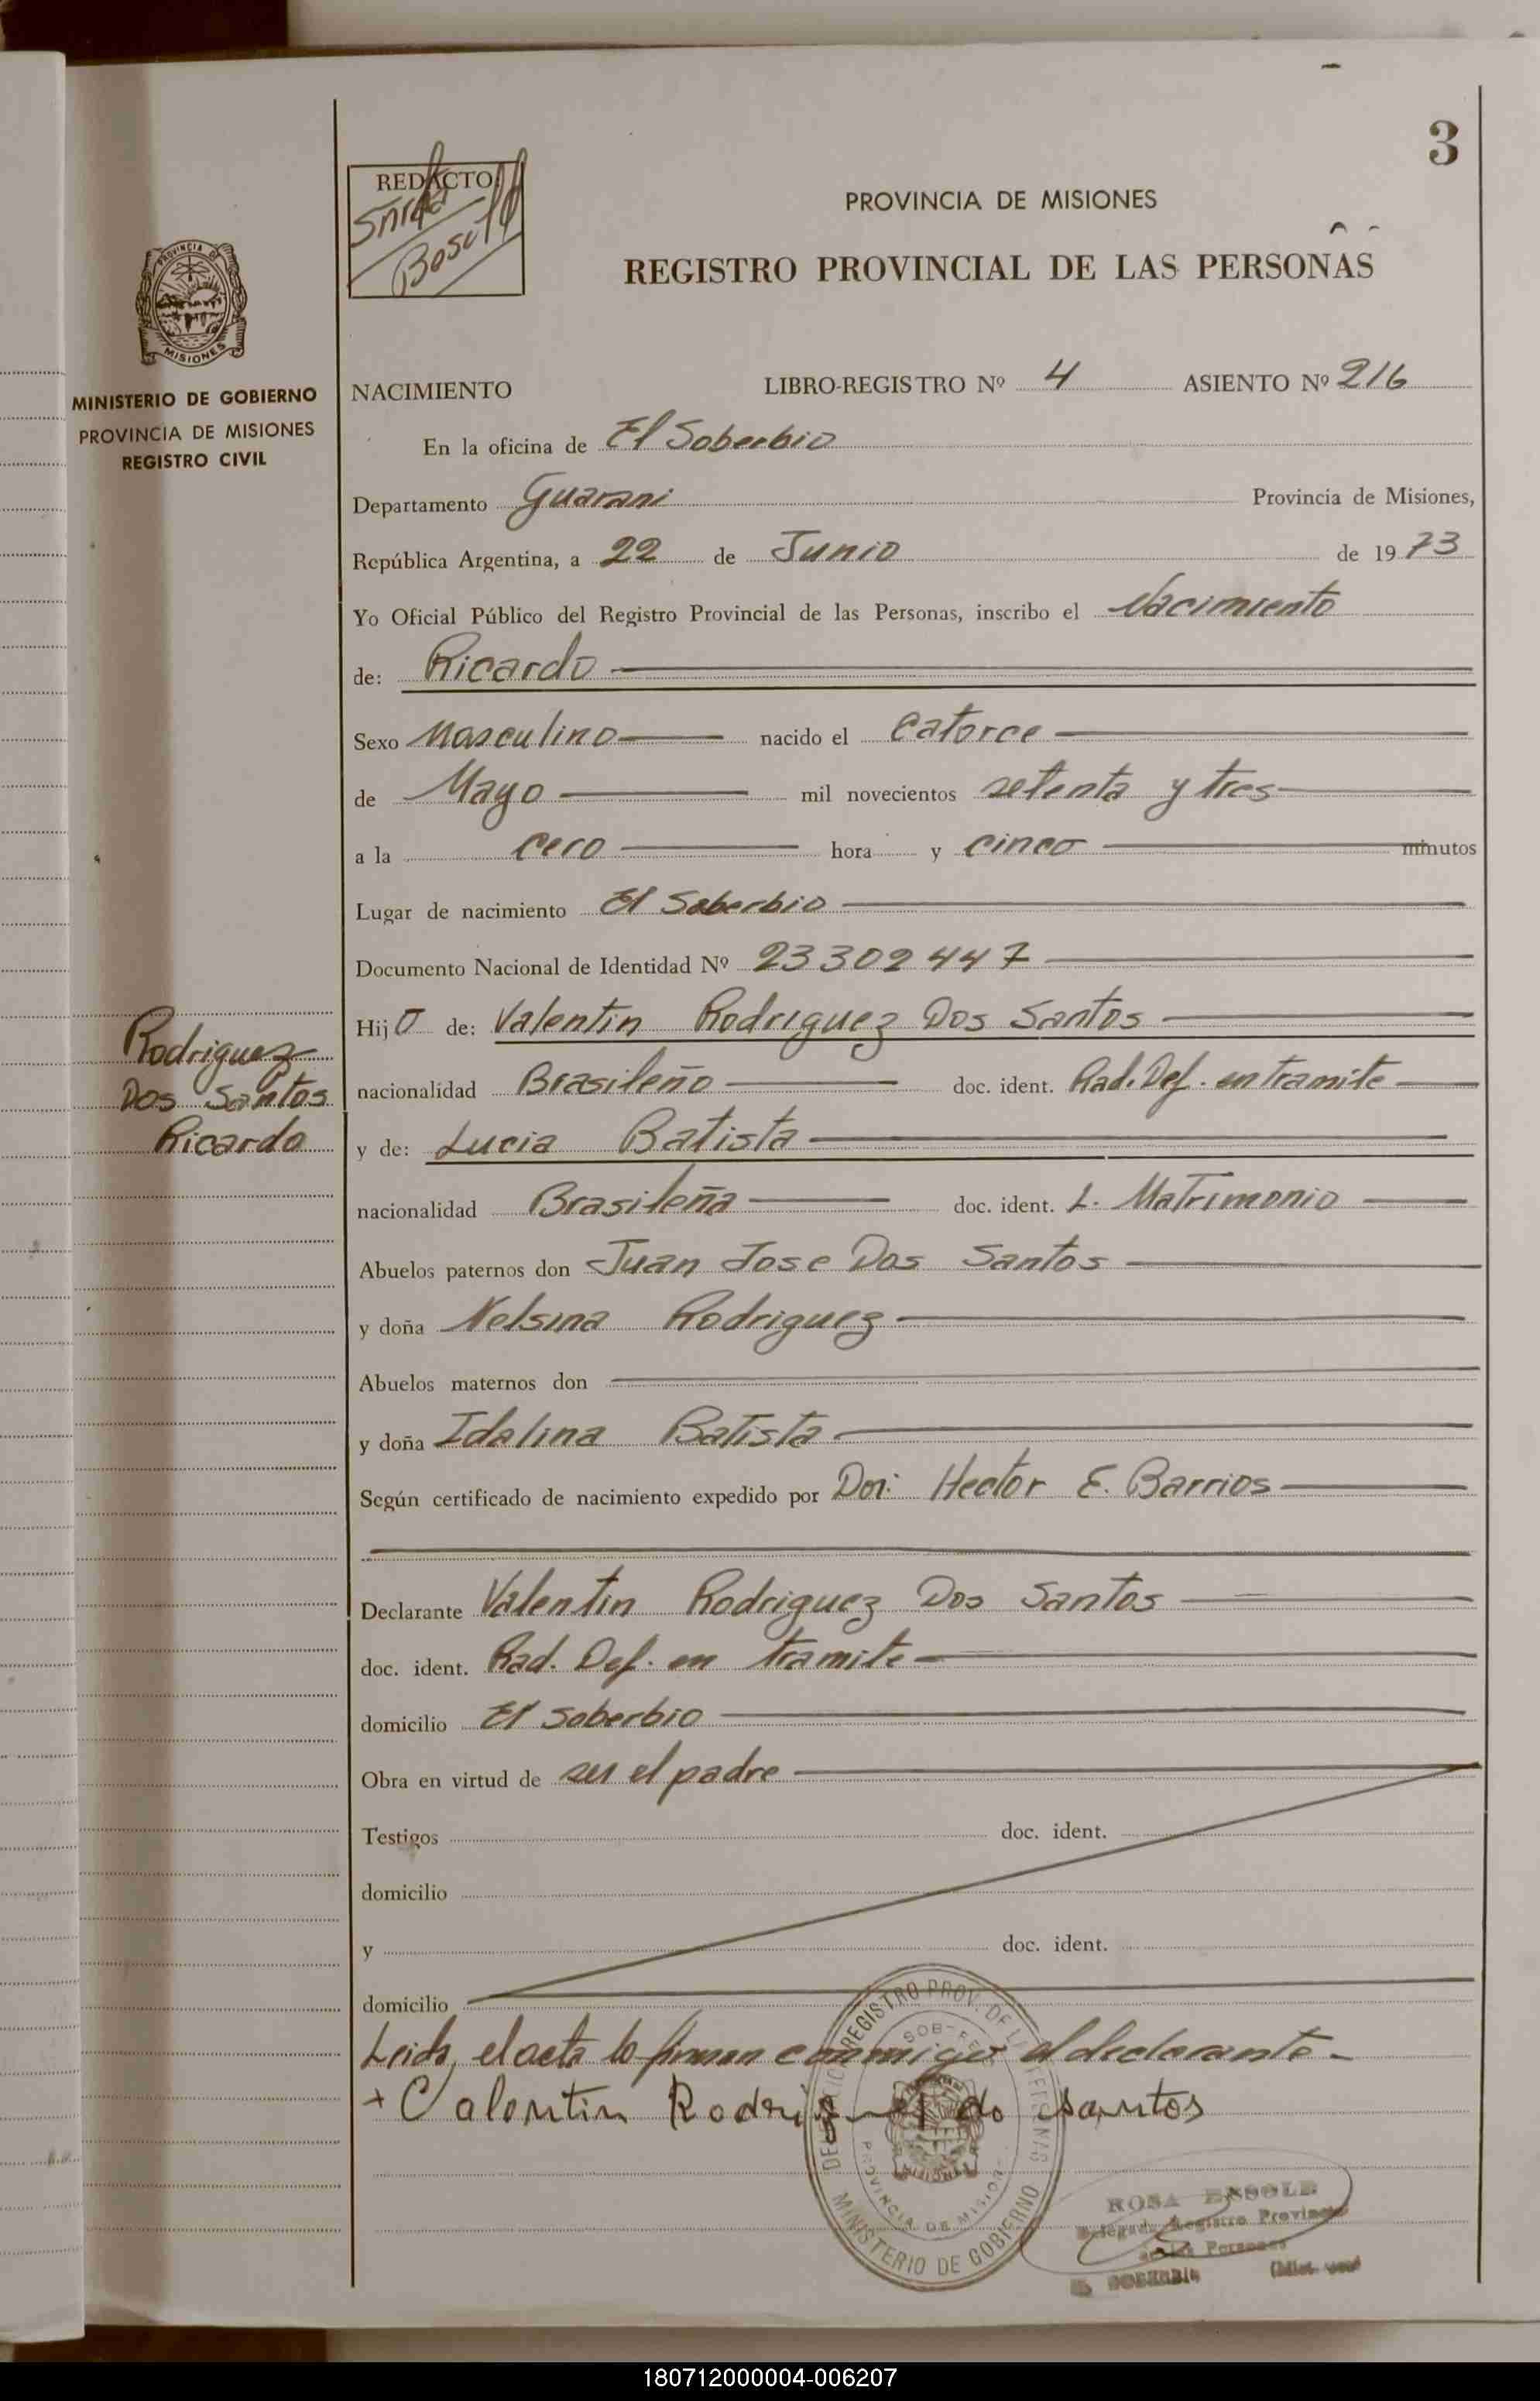 3
REDACTO
PROVINCIA DE MISIONES
REGISTRO PROVINCIAL DE LAS PERSONAS
PROVINCIA DE
MISIONES
MINISTERIO DE GOBIERNO
PROVINCIA DE MISIONES
REGISTRO CIVIL
NACIMIENTO LIBRO-REGISTRO Nº 4 ASIENTO Nº 216
En la oficina de El Soberbio
Departamento Guarani Provincia de Misiones,
República Argentina, a 22 de Junio de 1973
Yo Oficial Público del Registro Provincial de las Personas, inscribo el Nacimiento
de: Ricardo
Sexo Masculino nacido el Catorce
de Mayo mil novecientos setenta y tres
a la cero hora y cinco minutos
Lugar de nacimiento El Soberbio
Documento Nacional de Identidad Nº 23302447
Hijo de: Valentin Rodriguez Dos Santos
Rodriguez
Dos Santos
Ricardo
nacionalidad Brasileño doc. ident. Rad. Def. en tramite
y de: Lucia Batista
nacionalidad Brasileña doc. ident. L. Matrimonio
Abuelos paternos don Juan Jose Dos Santos
y doña Nelsina Rodriguez
Abuelos maternos don
y doña Idalina Batista
Según certificado de nacimiento expedido por Dor: Hector E. Barrios
Declarante Valentin Rodriguez Dos Santos
doc. ident. Rad. Def. en tramite
domicilio El Soberbio
Obra en virtud de ser el padre
Testigos doc. ident.
domicilio
y doc. ident.
domicilio
Leida, el acta lo firman conmigo el declarante
+ Valentin Rodriguez do Santos
REGISTRO PROV. DE
PROVINCIA DE MISIONES
MINISTERIO DE GOBIERNO
ROSA
Registro Provincial
de las Personas
180712000004-006207